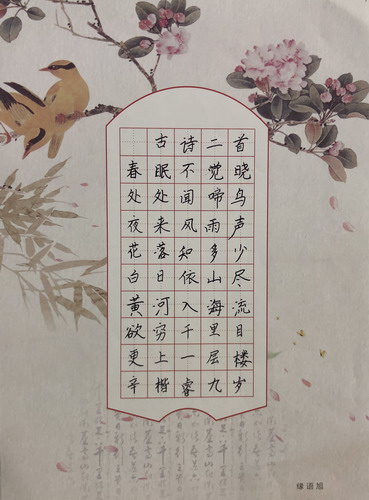 古诗二首
春眠不觉晓
处处闻啼鸟
夜来风雨声
花落知多少
白日依山尽
黄河入海流
欲穷千里目
更上一层楼
辛楷睿九岁
缘语旭